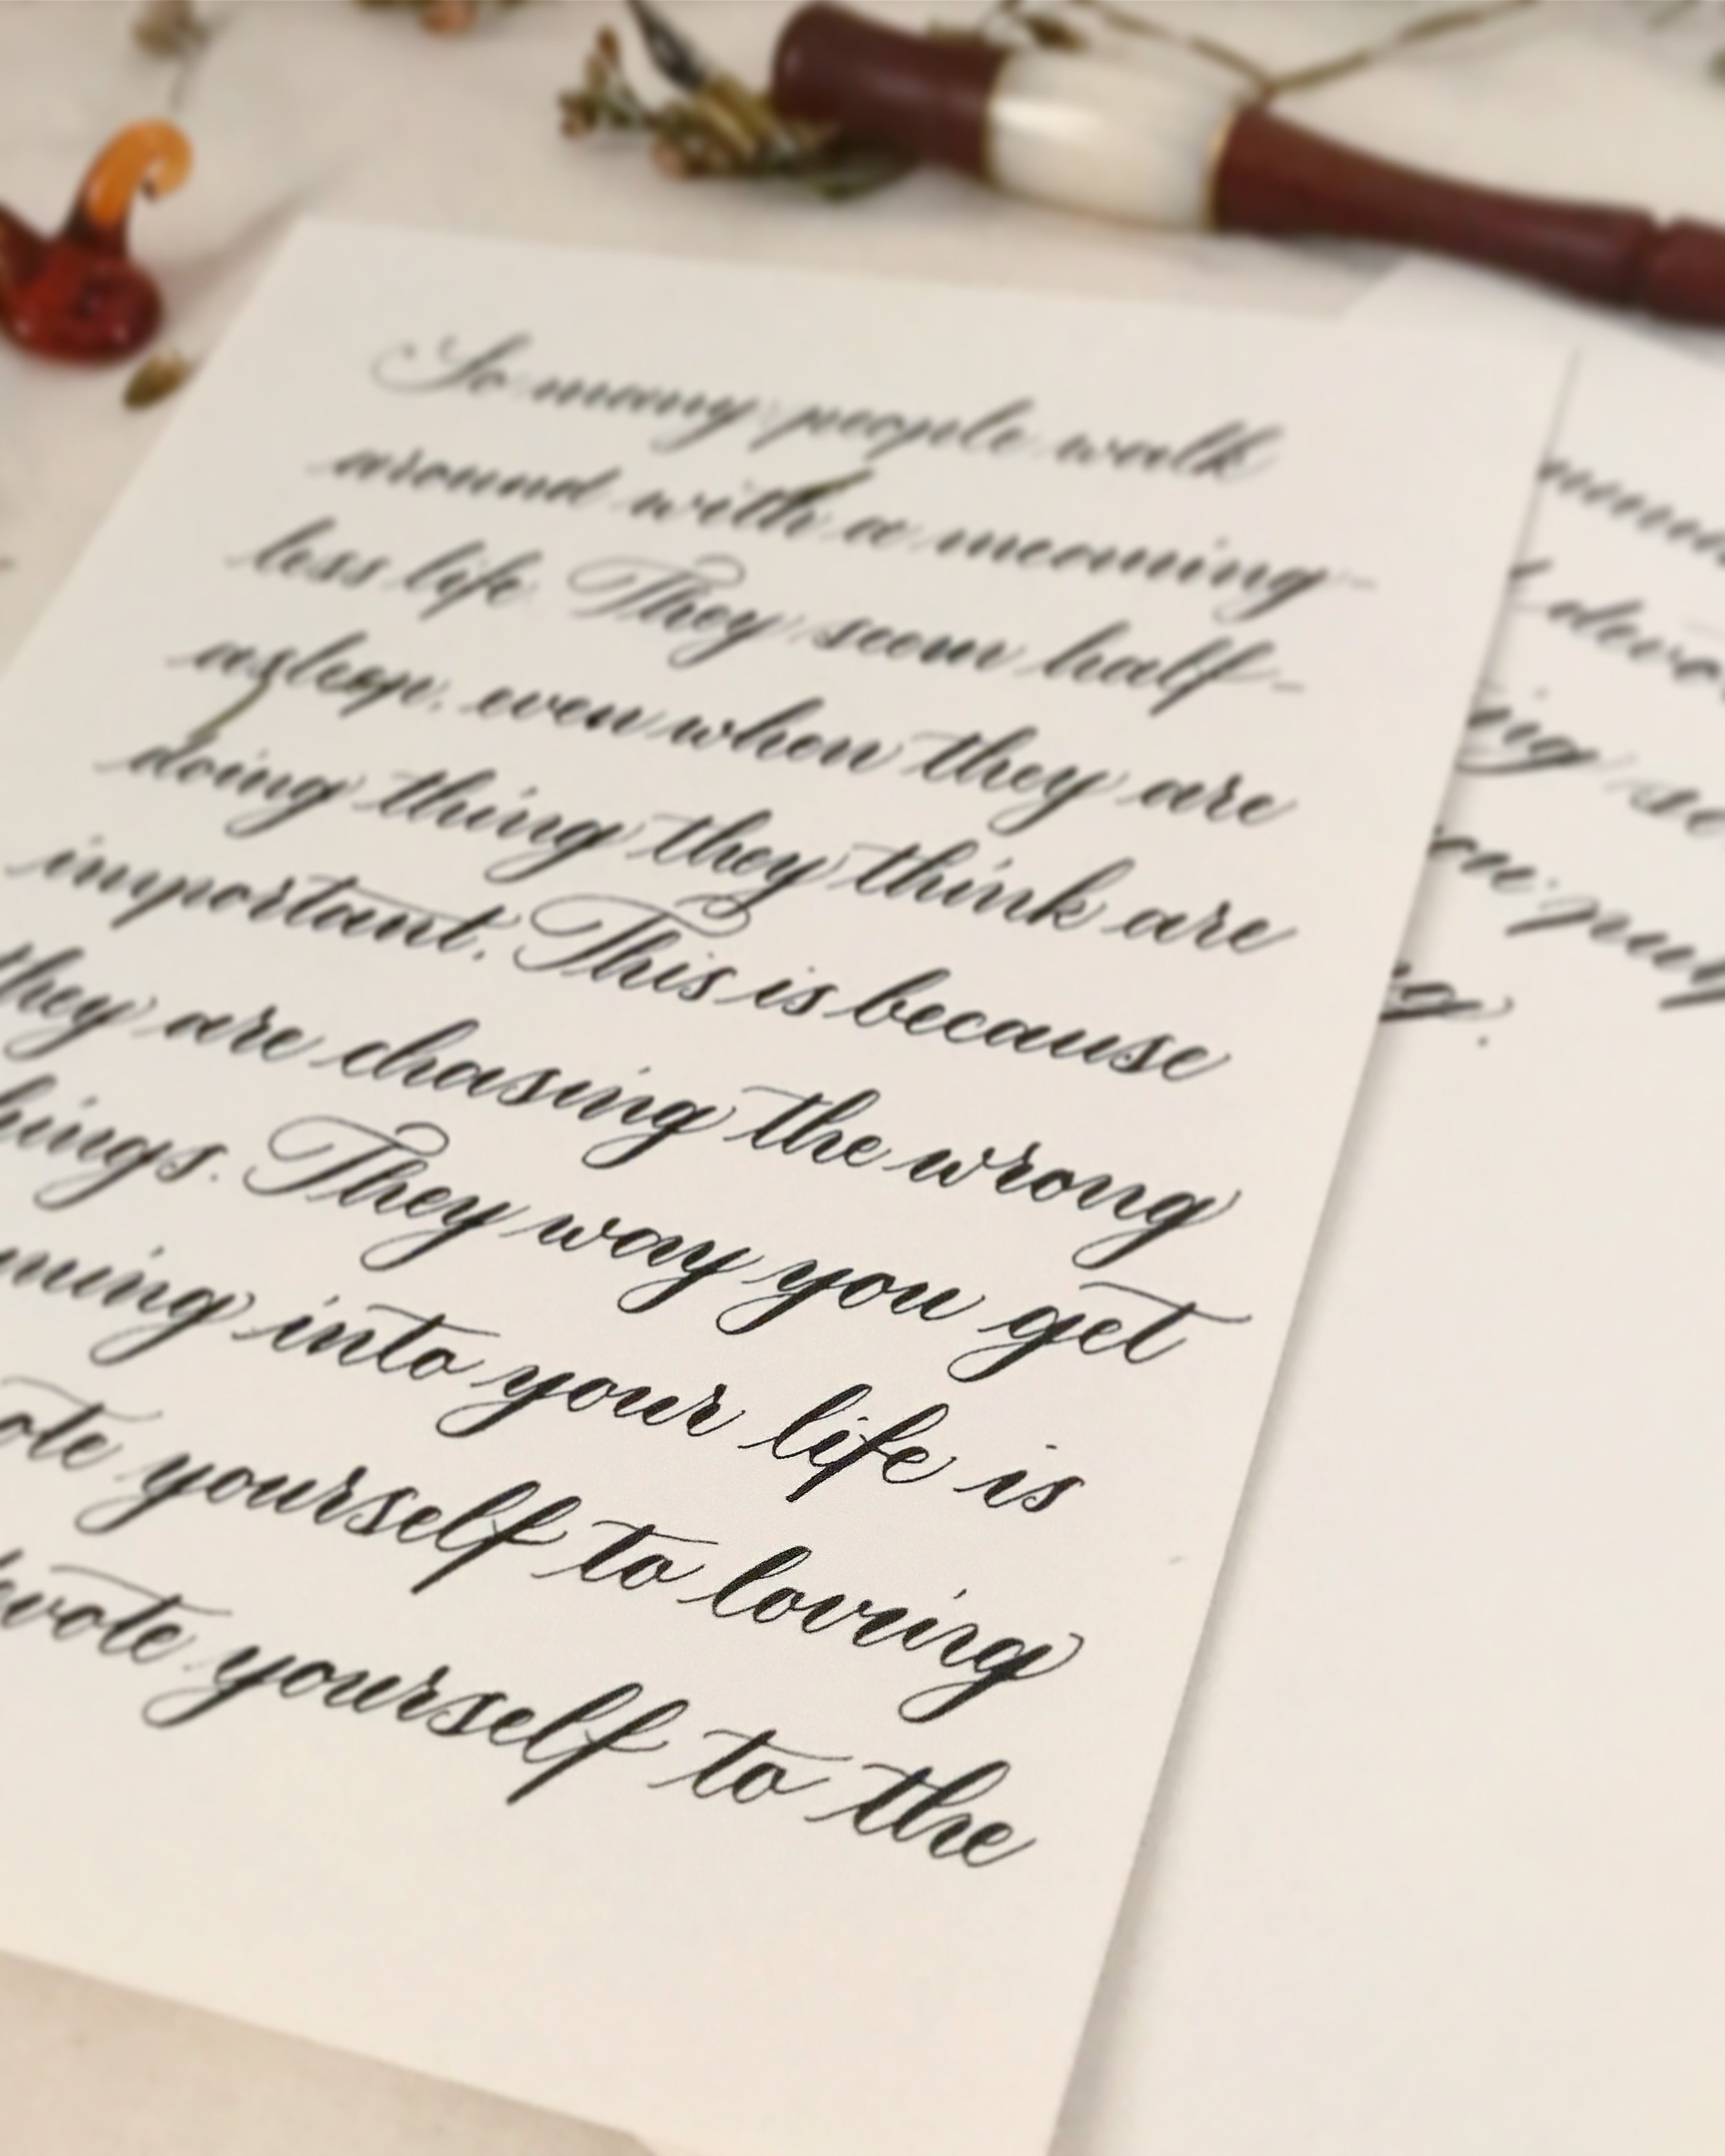 So many people walk
around with a meaning-
less life. They seem half-
asleep, even when they are
doing thing they think are
important. This is because
they are chasing the wrong
hings. They way you get
ning into your life is
ote yourself to loving
evote yourself to the
devo
ing se
ou pur